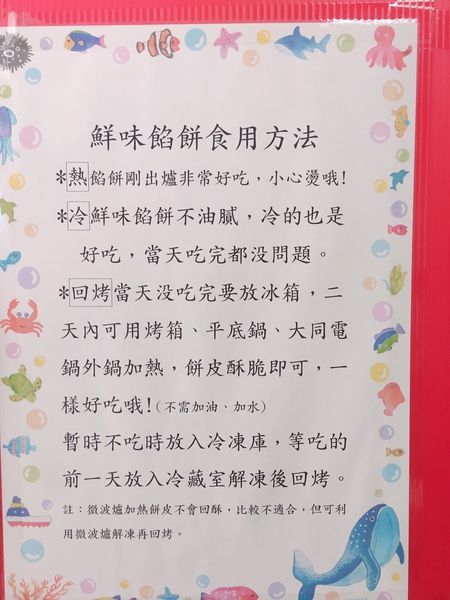 鮮味餡餅食用方法
*熱餡餅剛出爐非常好吃，小心燙哦!
*冷鮮味餡餅不油膩，冷的也是
好吃，當天吃完都没問題。
*回烤當天没吃完要放冰箱，二
天內可用烤箱、平底鍋、大同電
鍋外鍋加熱，餅皮酥脆即可，一
樣好吃哦!(不需加油、加水)
暫時不吃時放入冷凍庫，等吃的
前一天放入冷藏室解凍後回烤。
註：微波爐加熱餅皮不會回酥，比較不適合，但可利
用微波爐解凍再回烤。